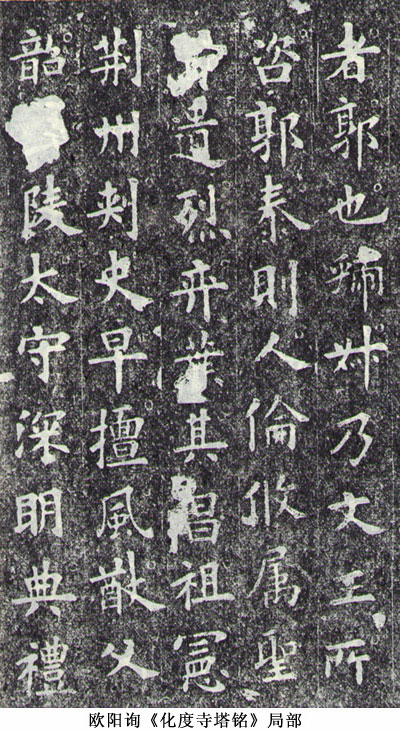 者郭也虢叔乃文王所
咨郭泰則人倫攸属聖
遺烈弈葉其昌祖憲
荊州刺史早擅風猷父
韶陵太守深明典禮
欧阳询《化度寺塔铭》局部